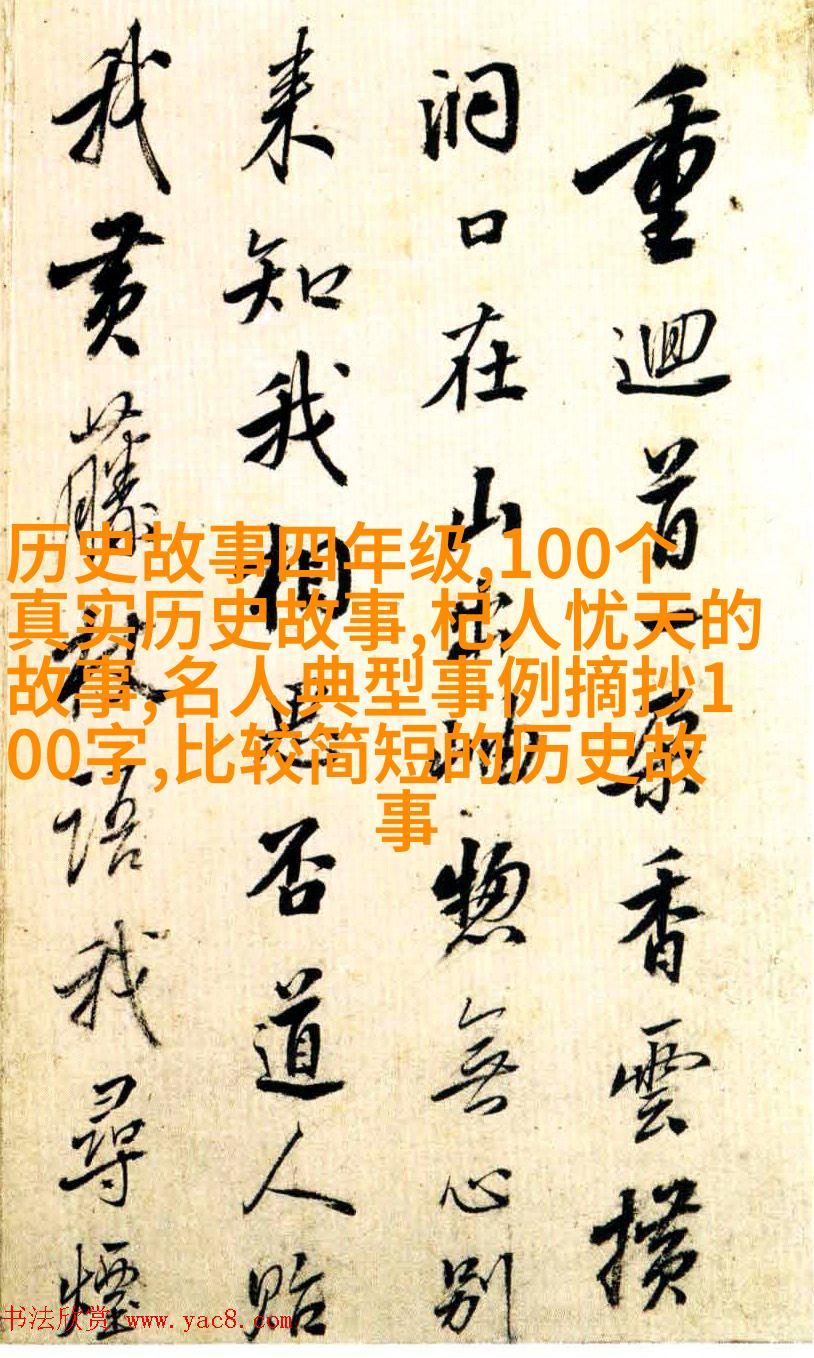 重迴首一香雲横
洞口在山出岫惣無心別
来知我相思否道人貽
我黄藤杖語我尋煙
历史故事四年级,100个
真实历史故事,杞人忧天的
故事,名人典型事例摘抄1
00字,比较简短的历史故
事
书法欣赏 www.yac8.com